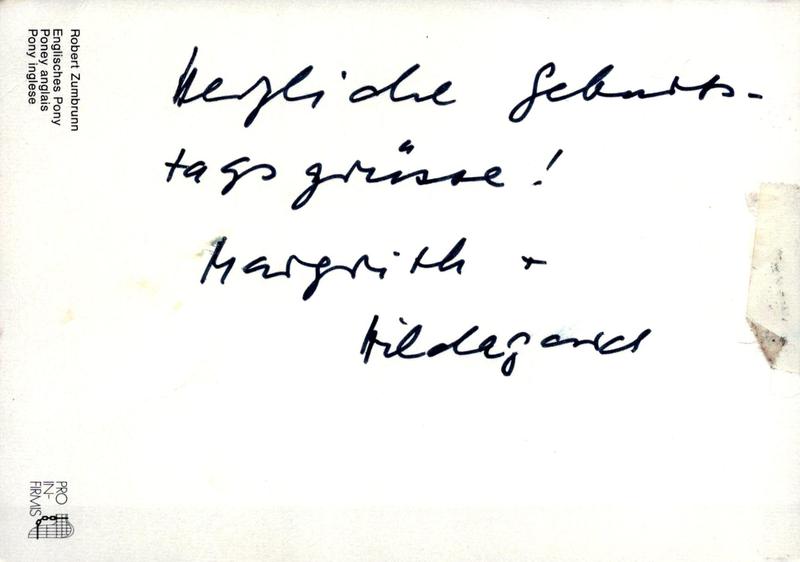 Herzliche Geburts-
tagsgrüsse!
Margrith +
Hildegard
Robert Zumbrunn
Englisches Pony
Poney anglais
Pony inglese
PRO
IN-
FIRMIS